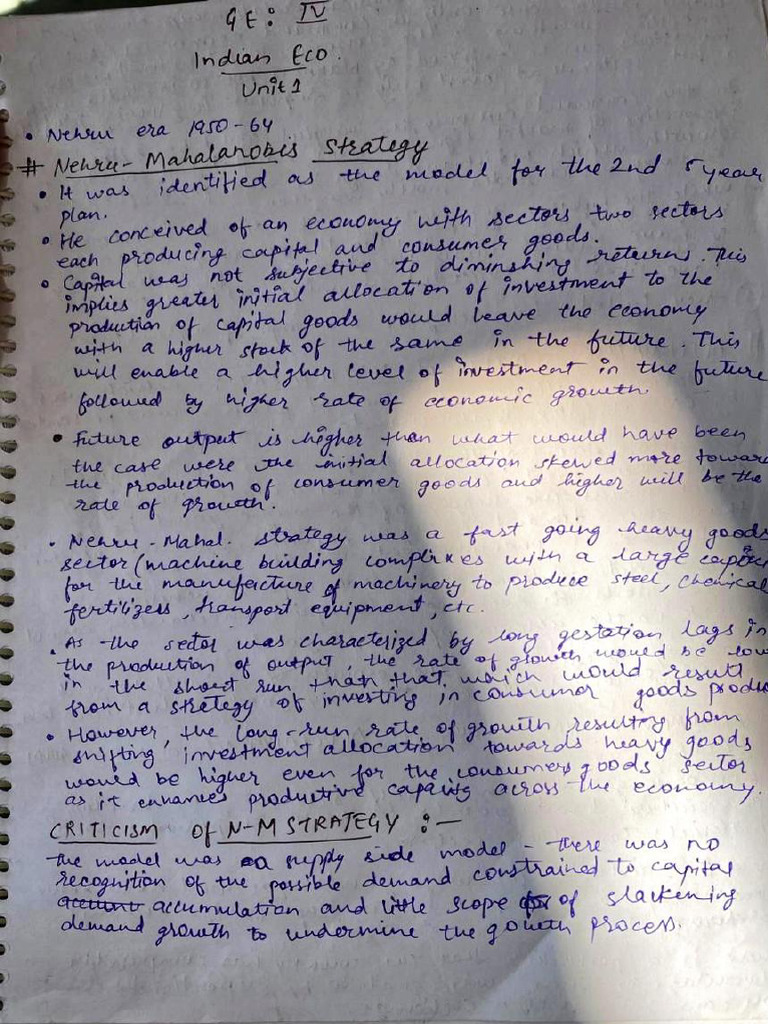 GE: IV
Indian Eco.
Unit 1
• Nehru era 1950-64
# Nehru-Mahalanobis Strategy
• It was identified as the model for the 2nd 5 year
plan.
• He conceived of an economy with sectors two sectors
each producing capital and consumer goods.
• Capital was not subjective to diminshing returns. This
implies greater initial allocation of investment to the
production of capital goods would leave the economy
with a higher stock of the same in the future. This
will enable a higher level of investment in the future
followed by higher rate of economic growth.
• Future output is higher than what would have been
the case were the initial allocation skewed more toward
the production of consumer goods and higher will be the
rate of growth.
• Nehru-Mahal. strategy was a fast going heavy goods
sector (machine building complexes with a large
for the manufacture of machinery to produce steel, chemical
fertilizers, transport equipment, etc.
• As the sector was characterized by long gestation lags in
the production of output, the rate of growth would be low
in the short run than that which would result
from a strategy of investing in consumer goods produ
• However, the long-run rate of growth resulting from
shifting investment allocation towards heavy goods
would be higher even for the consumers goods sector
as it enhances productive capacity across the economy.
CRITICISM of N-M STRATEGY :-
the model was a supply side model - there was no
recognition of the possible demand constrained to capital
accumulation and little scope of slackening
demand growth to undermine the growth process.